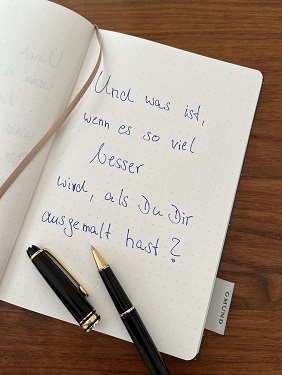 Und was ist,
wenn es so viel
besser
wird, als Du Dir
ausgemalt hast?
GMUND